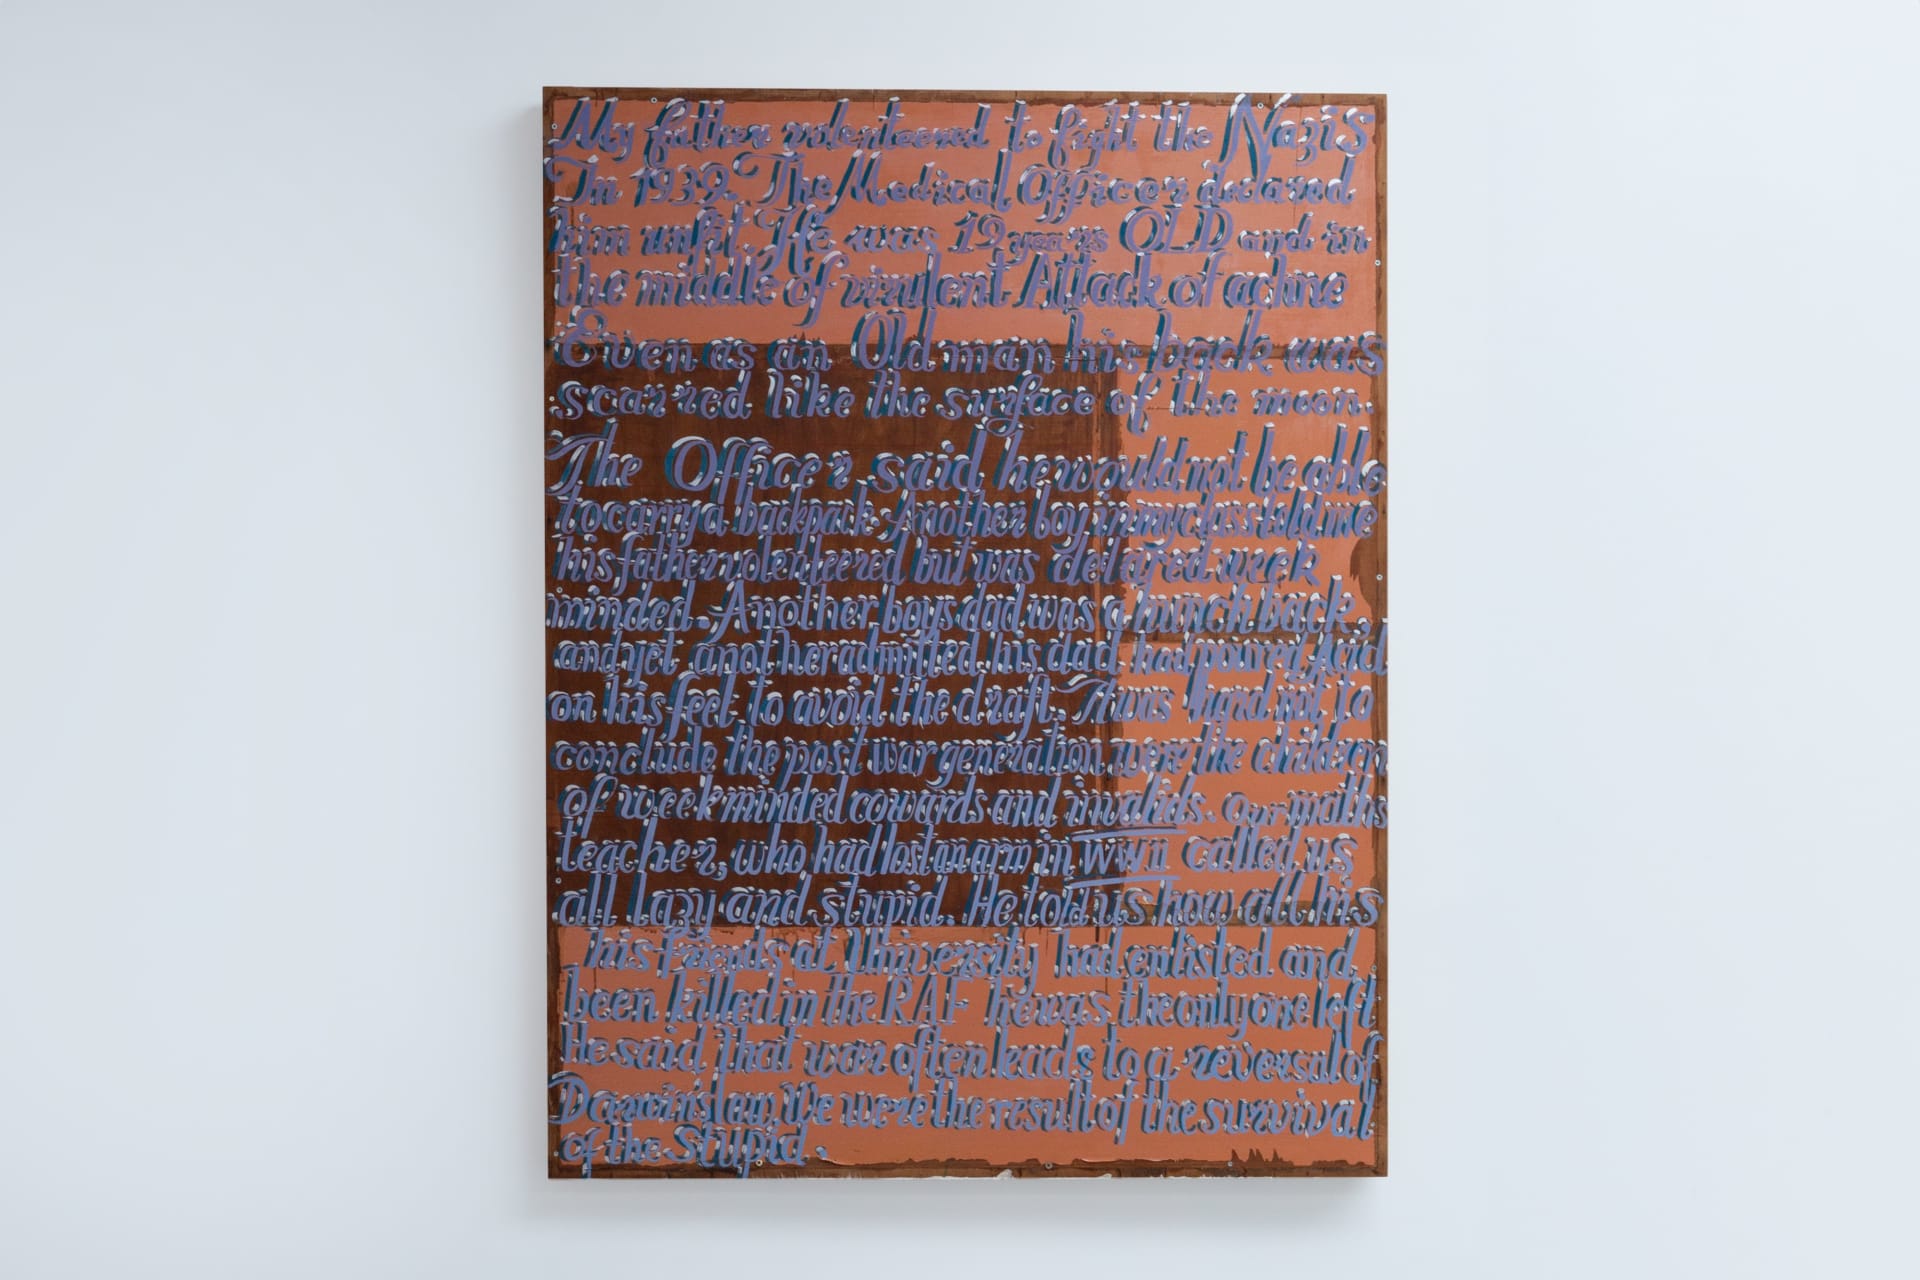 My father volenteered to fight the Nazis
In 1939. The Medical Officer declared
him unfit. He was 19 years OLD and in
the middle of virulent Attack of achne
Even as an Old man his back was
scarred like the surface of the moon.
The Officer said he would not be able
to carry a backpack. Another boy in my class told me
his father volenteered but was declared week
minded. Another boys dad was a hunch back,
and yet another admitted his dad had poured Acid
on his feet to avoid the draft. It was hard not to
conclude the post war generation were the children
of week minded cowards and invalids. Our maths
teacher, who had lost an arm in WWII called us
all lazy and stupid. He told us how all his
his Friends at University had enlisted and
been killed in the RAF he was the only one left
He said that war often leads to a reversal of
Darwins law. We were the result of the survival
of the stupid.